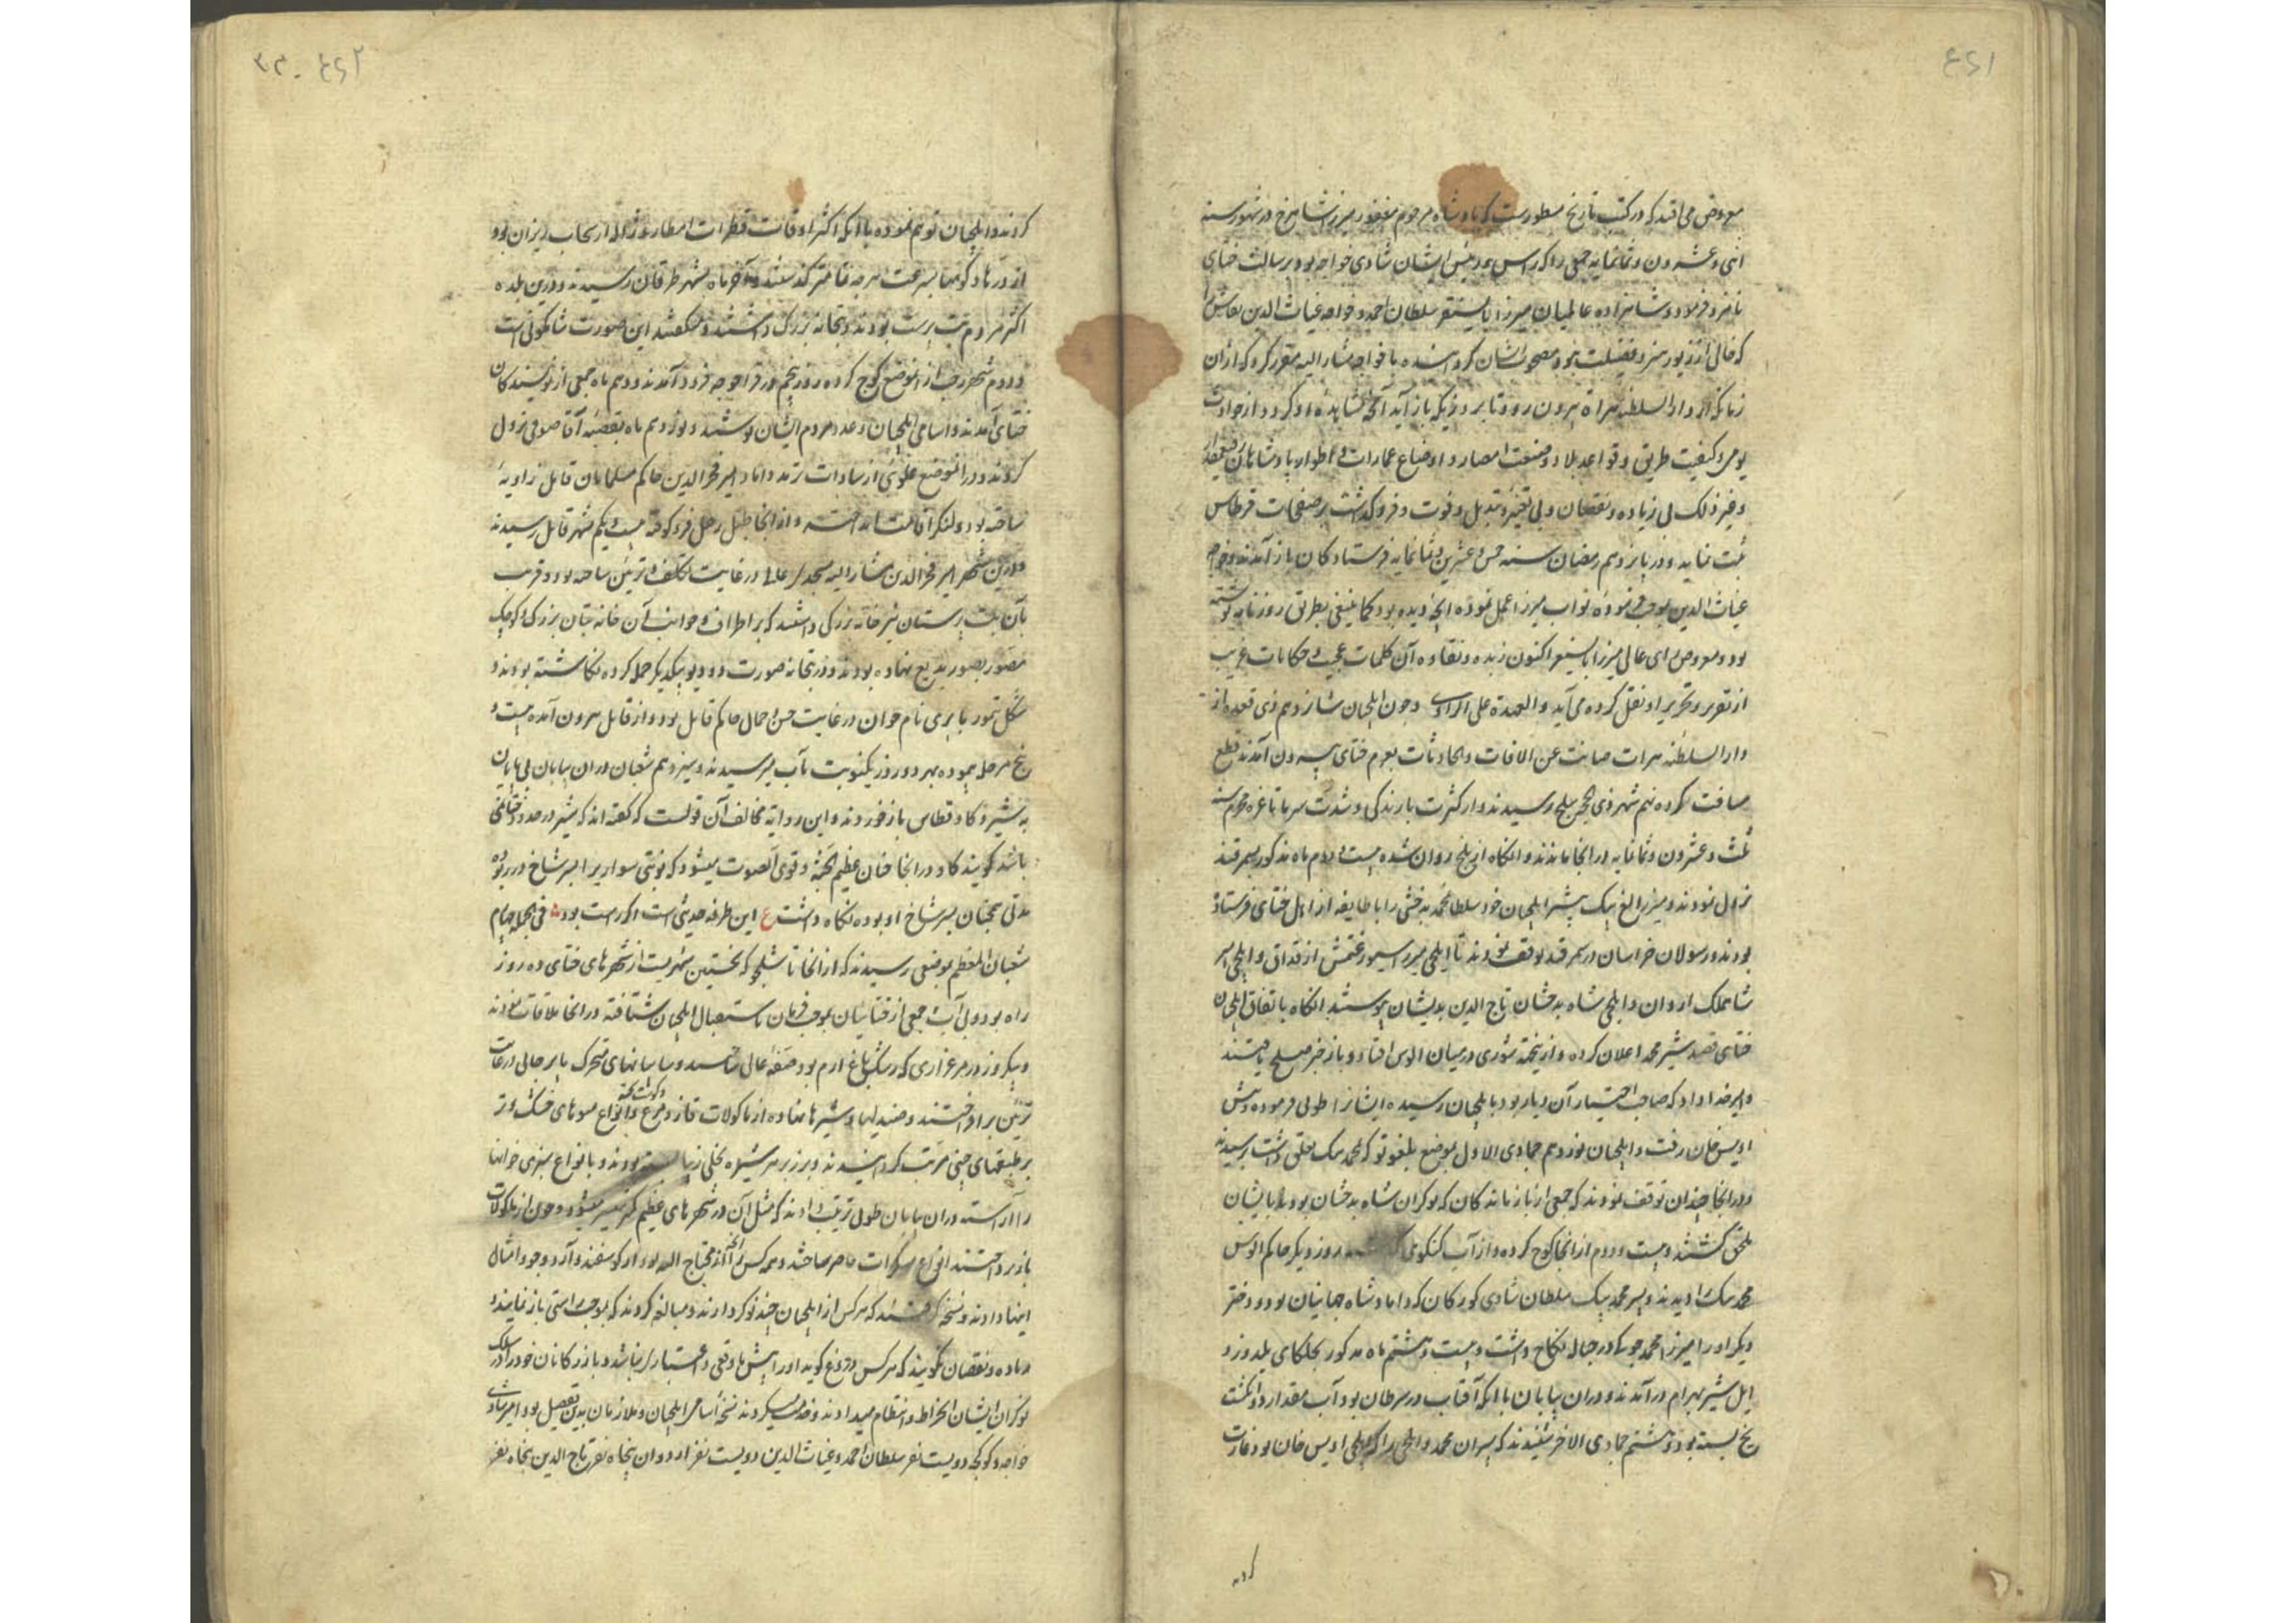 ٤٤١
معروض می افتد که در کتب تاریخ مسطورست که پادشاه مرحوم مغفور میرزا شاهرخ در شهور سنه
اثنی و عشرون و ثمانمایه جمعی را که راس و رئیس ایشان شادی خواجه بود برسالت ختای
نامزد فرمود و شاهزاده عالمیان میرزا بایسنقر سلطان احمد و خواجه غیاث الدین نقاش را
که خالی از زیور هنر و فضیلت نبود مصحوب ایشان گردانیده با خواجه مشار الیه مقرر کرد که از آن
زمان که از دار السلطنه هراة بیرون رود تا بروزیکه باز آید آنچه مشاهده او گردد از حوادث
یومی و کیفیت طریق و قواعد بلاد و صنعت امصار و اوضاع عمارات و اطوار پادشاهان
و غیر ذلک بی زیاده و نقصان و بی تغییر و تبدیل و فوت و فروگذاشت بر صفحات قرطاس
ثبت نماید و در یازدهم رمضان سنه خمس و عشرین و ثمانمایه فرستادگان باز آمدند و خواجه
غیاث الدین بموجب فرموده نواب میرزا عمل نموده آنچه دیده بود کما ینبغی بطریق روزنامه نوشته
بود و معروض رای عالی میرزا بایسنقر اکنون زبده و نقاوه آن کلمات عجیب و حکایات غریب
از تقریر و تحریر او نقل کرده می آید و العهدة علی الراوی و چون ایلچیان شانزدهم ذی قعده از
دار السلطنه هرات صانت عن الافات و الحادثات بعزم ختای بیرون آمدند قطع
مسافت کرده نهم شهر ذی الحجه ببلخ رسیدند و از کثرت بارندگی و شدت سرما تا غره محرم سنه
ثلث و عشرون و ثمانمایه در آنجا ماندند و آنگاه از بلخ روان شده بیست و دوم ماه مذکور بسمرقند
نزول نمودند و میرزا الغ بیک پیشتر ایلچیان خود سلطانمحمد بخشی را با طایفه از اهل ختای فرستاده
بودند و رسولان خراسان در سمرقند توقف نمودند تا ایلچی میرزا سیورغتمش ارغداق و ایلچی امیر
شاهملک اردوان و ایلچی شاه بدخشان تاج الدین بدیشان پیوستند آنگاه باتفاق ایلچیان
ختای قصد شیر محمد اعلان کرده و از نیجهته شوری در میان الوس افتاد و باز خبر صلح یافتند
و امیر خداداد که صاحب اختیار آن دیار بود بایلچیان رسیده ایشانرا طوی فرموده و پیش
اویس خان رفت و ایلچیان نوزدهم جمادی الاول بموضع بلغوتو که بمحمد بیک تعلق داشت رسیدند
و در آنجا چندان توقف نمودند که جمعی از بازماندگان که نوکران شاه بدخشان بودند بایشان
ملحق گشتند و بیست و دوم از آنجا کوچ کرده و از آب کنکوی روز دیگر حاکم الوس
محمد بیک را دیدند و پسر محمد بیک سلطان شادی کورکان که داماد شاه جهانیان بود و دختر
دیگر او را میرزا محمد جوکی در حباله نکاح داشت و بیست و هشتم ماه مذکور بجلگای یلدوز و
ایل شیر بهرام در آمدند و در آن بیابان با آنکه آفتاب در سرطان بود آب مقدار دو انگشت
یخ بسته بود و هشتم جمادی الاخر شنیدند که پسران محمد و ایلچی را که ایلچی اویس خان بود غارت
کردند
٤٤٢
کردند و ایلچیان توهم نموده با آنکه اکثر اوقات قطرات امطار و ژاله از سحاب ریزان بود
از دره ها و کوهها بسرعت هر چه تمامتر گذشتند و آخر ماه بشهر طرفان رسیدند و درین بلده
اکثر مردم بت پرست بودند و بتخانه بزرگ داشتند و میگفتند این صورت شاکمونی است
و دوم شهر رجب از آنموضع کوچ کرده روز پنجم در قراخوجه فرود آمدند و دهم ماه جمعی از نویسندگان
ختای آمدند و اسامی ایلچیان و عدد مردم ایشان نوشتند و نوزدهم ماه بقصبه آتا صوفی نزول
کردند و در آنموضع علوی از سادات ترمد داماد امیر فخر الدین حاکم مسلمانان قابل زاویه
ساخته بود و لنگر اقامت انداخته و از آنجا طبل رحیل فرو کوفته بیست و یکم بشهر قابل رسیدند
و درین شهر امیر فخر الدین مشار الیه مسجد عالی در غایت تکلف و تزیین ساخته بود و قریب
بآن بت پرستان نیز خانه بزرگی داشتند که بر اطراف و جوانب آن خانه بتان بزرگ و کوچک
مصور بصور بدیع نهاده بودند و در بتخانه صورت دو دیو بیکدیگر حمله کرده نگاشته بودند و
منگلی تیمور بایری نام جوان در غایت حسن و جمال حاکم قابل بود و از قابل بیرون آمده بیست و
پنج مرحله پیموده بهر دو روز یکنوبت بآب میرسیدند و سیزدهم شعبان در آن بیابان بی پایان
به شیر و گاو قطاس باز خوردند و این روایة مخالف آن قولست که گفته اند که شیر در حدود ختای نمی
باشد گویند گاو در آنجا چنان عظیم الجثه و قوی الصوت میشود که نوبتی سواری را بسر شاخ در ربوده
مدتی همچنان بسر شاخ او بوده نگاه داشت ع این طرفه حدیثی است اگر راست بود فی الجمله چهاردهم
شعبان المعظم بموضعی رسیدند که از آنجا تا سکجو که نخستین شهریست از شهرهای ختای ده روز
راه بود و بی آب جمعی از ختائیان بموجب فرمان باستقبال ایلچیان شتافته در آنجا ملاقات نمودند
و یکروز در مرغزاری که رشک باغ ارم بود صفه عالی و سایبانهای متحرک پا بر جای در غایت
تزیین برافراختند و صندلیها و شیره ها نهاده از ماکولات قاز و مرغ و گوشت پخته و انواع میوهای خشک و تر
بر طبقهای چینی مرتب گردانیدند و بر زبر هر شیره نخلی زیبا بسته بودند و بانواع سبزی خوانها
را آراسته در آن بیابان طوی ترتیب دادند که مثل آن در شهرهای عظیم کمتر میسر میشود و چون از ماکولات
باز پرداختند انواع مسکرات حاضر ساختند و همه کس را آنچه محتاج الیه بود از گوسفند و آرد و جو و امثال
اینها دادند و نسخه گرفتند که هر کس از ایلچیان چند نوکر دارند و مبالغه کردند که بموجب راستی باز نمایند و
زیاده و نقصان نگویند که هر کس دروغ گوید او را پیش ما وقعی و اعتبار نباشد و بازرگانان خود را در سلک
نوکران ایشان انخراط و انتظام میدادند و خدمت میکردند نسخه اسامی ایلچیان و ملازمان بدین تفصیل بود امیر شادی
خواجه و کوکجه دویست نفر سلطان احمد و غیاث الدین دویست نفر اردوان پنجاه نفر تاج الدین پنجاه نفر